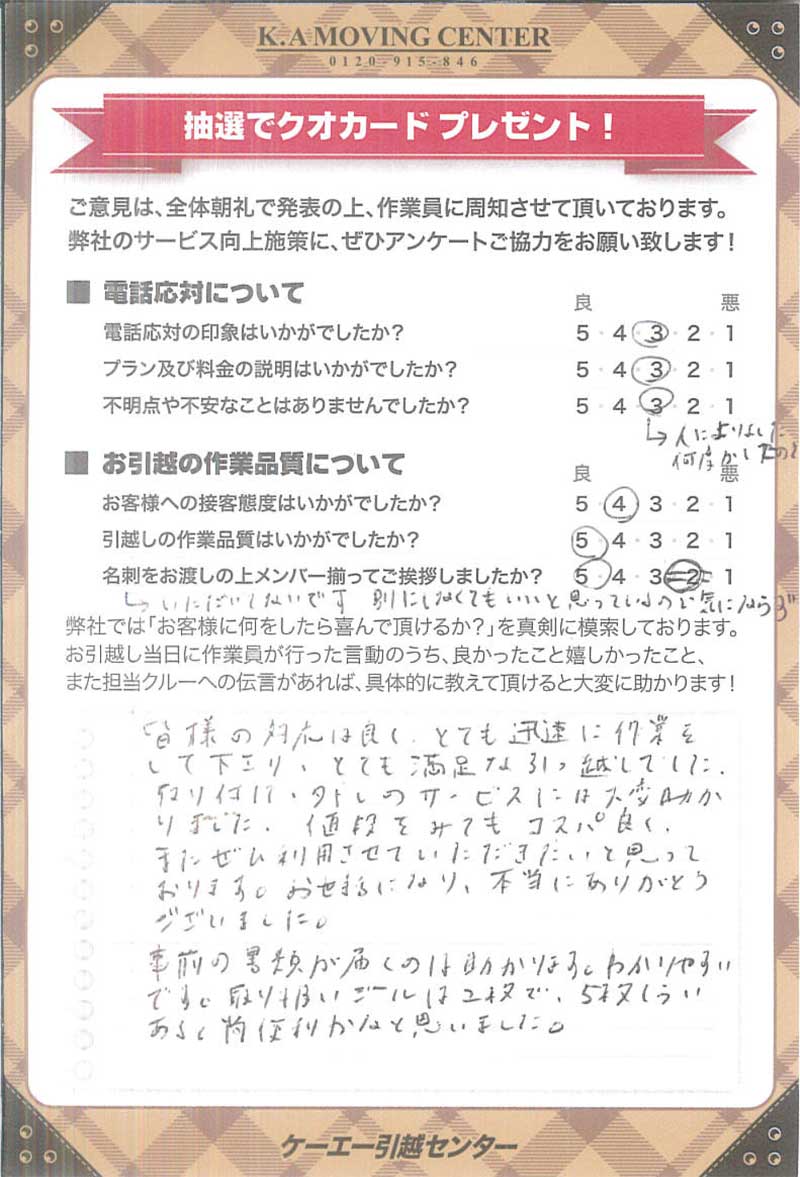 K.A MOVING CENTER
0120-915-846
抽選でクオカード プレゼント！
ご意見は、全体朝礼で発表の上、作業員に周知させて頂いております。
弊社のサービス向上施策に、ぜひアンケートご協力をお願い致します！
■ 電話応対について
良 悪
電話応対の印象はいかがでしたか？ 5・4・3・2・1
プラン及び料金の説明はいかがでしたか？ 5・4・3・2・1
不明点や不安なことはありませんでしたか？ 5・4・3・2・1
↳ 人によりました
何度かしたの
■ お引越の作業品質について
良 悪
お客様への接客態度はいかがでしたか？ 5・4・3・2・1
引越しの作業品質はいかがでしたか？ 5・4・3・2・1
名刺をお渡しの上メンバー揃ってご挨拶しましたか？ 5・4・3・2・1
↳ いただいてないです 別にしなくてもいいと思っているので気にならず
弊社では「お客様に何をしたら喜んで頂けるか？」を真剣に模索しております。
お引越し当日に作業員が行った言動のうち、良かったこと嬉しかったこと、
また担当クルーへの伝言があれば、具体的に教えて頂けると大変に助かります！
皆様の対応は良く、とても迅速に作業を
して下さり、とても満足な引っ越しでした。
取り付け・外しのサービスには大変助か
りました。値段をみてもコスパ良く、
またぜひ利用させていただきたいと思って
おります。お世話になり、本当にありがとう
ございました。
事前の書類が届くのは助かります。わかりやすい
です。取り扱いシールは2枚で、5枚くらい
あると尚便利かなと思いました。
ケーエー引越センター